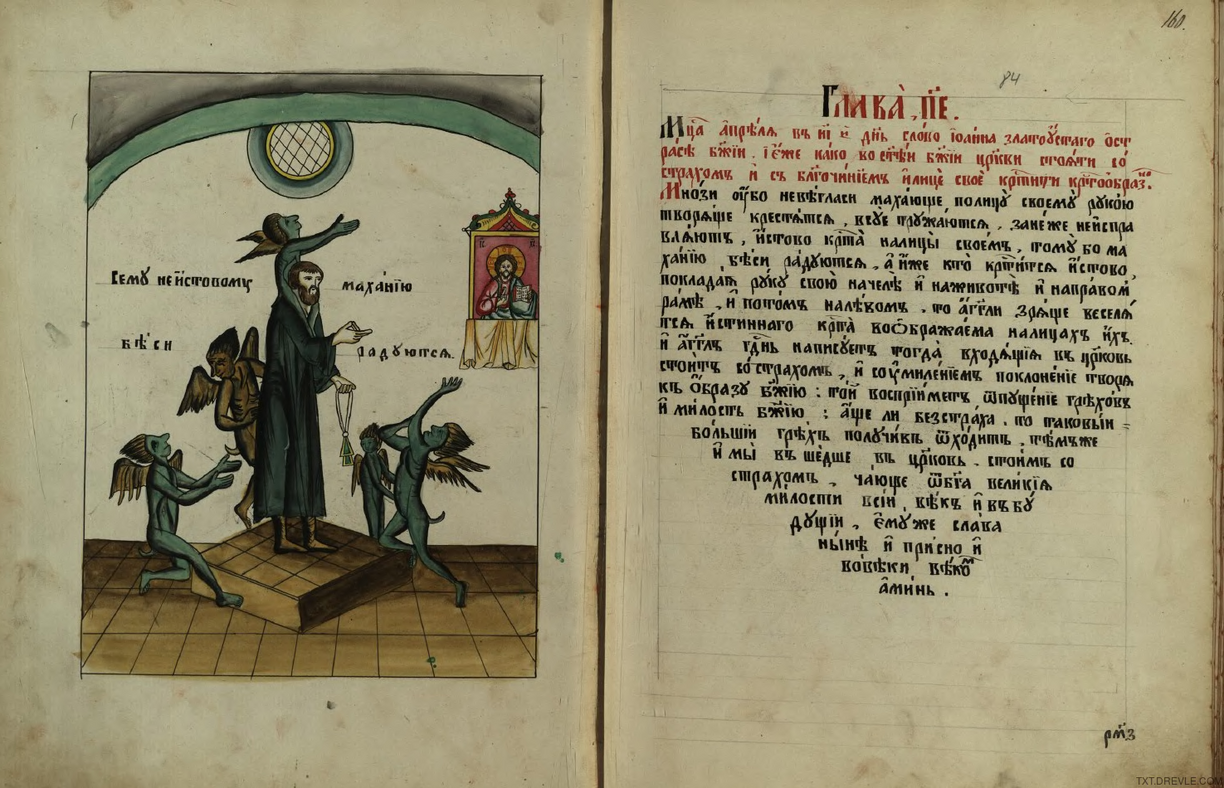 Сему неи҆стовому маха́нїю
бѣ́си ра́дуются.
160.
84
Глава̀, п҃е.
Мц҃а а҆прѣ́ля въ и҃і и҆ дн҃ь сло́во їѡа́нна златоу́стаго ѡ҆ст
ра́сѣ бж҃їи. і҆ е҆́же ка́ко во ст҃ѣ́й бж҃їи цр҃кви стоя́ти со
стра́хомъ и҆ съ бл҃гочи́нїемъ и҆лицѐ своѐ кр҃ти́ти крт҃оѡбра́з.
Мно́зи оу҆́бо невѣ́гласи маха́юще полицу̀ своему̀ руко́ю
творя́ще кре́стятся, всу́е тружа́ются, зане́же неи҆спра
вля́ютъ, и҆́стово крт҃а̀ налицы̀ свое́мъ, тому̀ бо ма
ха́нїю бѣ́си ра́дуются, а҆ и҆́же кто̀ кр҃ти́тся и҆́стово,
поклада́я ру́ку свою̀ начелѣ̀ и҆ наживотѣ̀ и҆ направом
ра́мѣ, и҆ пото́мъ налѣ́вомъ, то а҆́гг҃ли зря́ще веселя́
тся и҆́стиннаго крт҃а̀ воѡ҆бража́ема налица́хъ и҆́хъ.
и҆ а҆́гг҃лъ гд҃нь напису́етъ тогда̀ входя́щїя въ цр҃ковь
стои́тъ со́страхомъ, и҆ соу҆миле́нїемъ поклоне́нїе творя̀
къ ѻ҆́бразу бж҃їю : то́й воспрїи́метъ ѿпуще́нїе грѣхо́въ
и҆ ми́лость бж҃їю : а҆́ще ли безстра́ха, то таковы́и
бо́льшїй грѣ́хъ получи́въ ѿхо́дитъ. тѣ́мъже
и҆ мы̀ въше́дше въ цр҃ковь. стои́мъ со
стра́хомъ, ча́юще ѿбг҃а вели́кїя
ми́лости всі́й, вѣ́къ и҆ въбу́
ду́щїи, е҆му́же сла́ва
ны́нѣ и҆ при́сно и҆
вовѣ́ки вѣко́м
а҆ми́нь.
рм҃з
TXT.DREVLE.COM